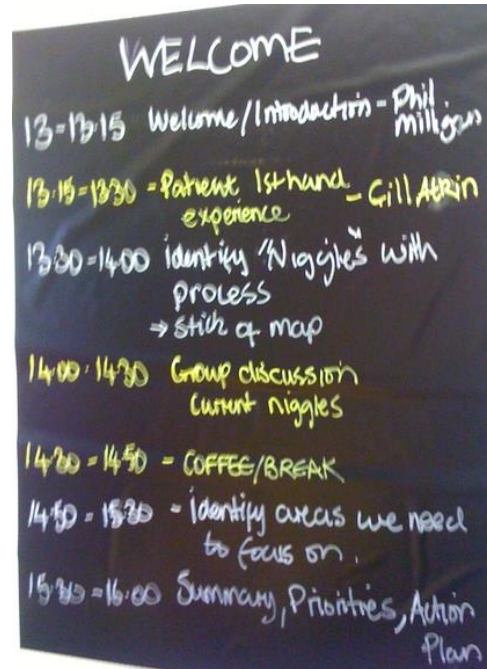 WELCOME
13-13.15 Welcome/Introduction - Phil
milligan
13.15-13.30 = Patient 1st hand - Gill Atkin
experience
13.30-14.00 identify "Niggles" with
process
→ stick on map
14.00-14.30 Group discussion
Current niggles
14.30 = 14.50 = COFFEE/BREAK
14.50 = 15.30 = identify areas we need
to focus on.
15.30-16.00 Summary, Priorities, Action
Plan